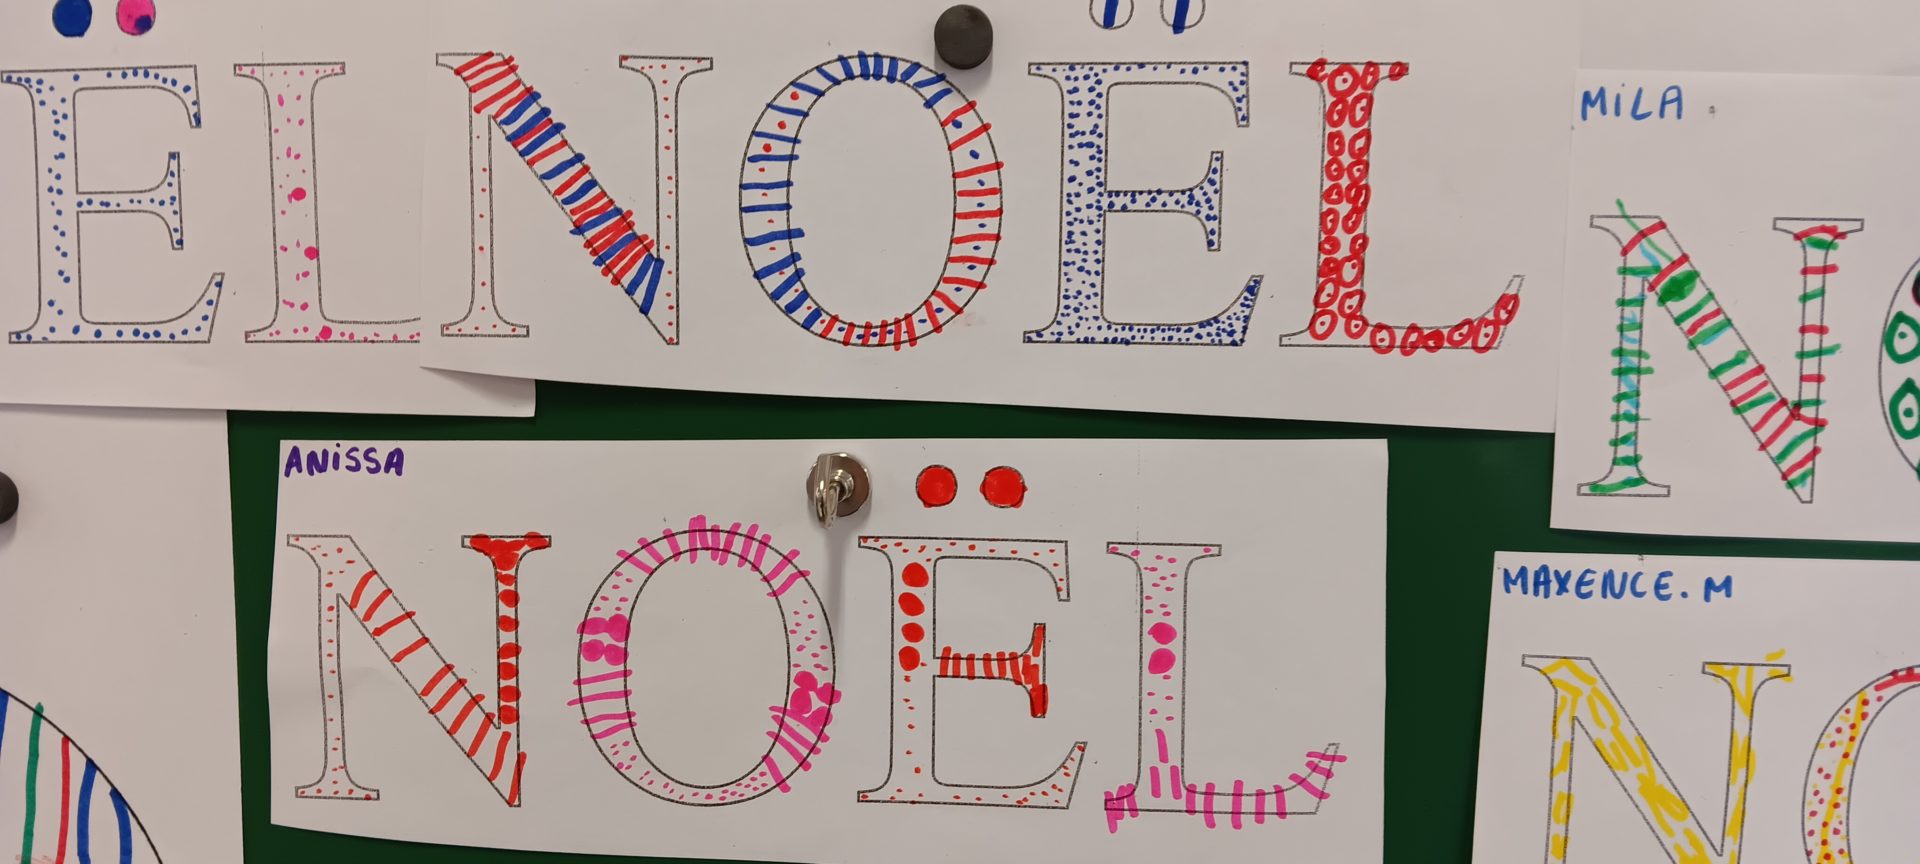 ËL
NOËL
MiLA
N
ANiSSA
NOËL
MAXENCE. M
NO